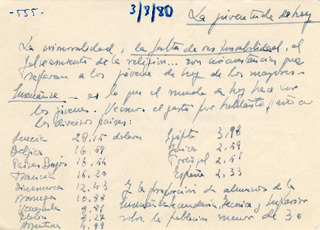 -555-
3/8/80
La juventud de hoy
La inmoralidad, la falta de responsabilidad, el
falseamiento de la religión... son circunstancias que
separan a los jóvenes de hoy de los mayores.
Enseñanza - es lo que el mundo de hoy hace con
los jóvenes. Veamos el gasto por habitante/año en
los diversos países:
Suecia 29,15 dolares
Belgica 16.59
Paises Bajos 15.54
Francia 16.20
Dinamarca 12.43
Noruega 10.88
Venezuela 8.81
Italia 8.27
Argentina 4.99
Egipto 3,98
Grecia 2.59
Portugal 2.51
España 2.33
Y la proporción de alumnos de la
Enseñanza secundaria, técnica y superior
sobre la población menor de 30